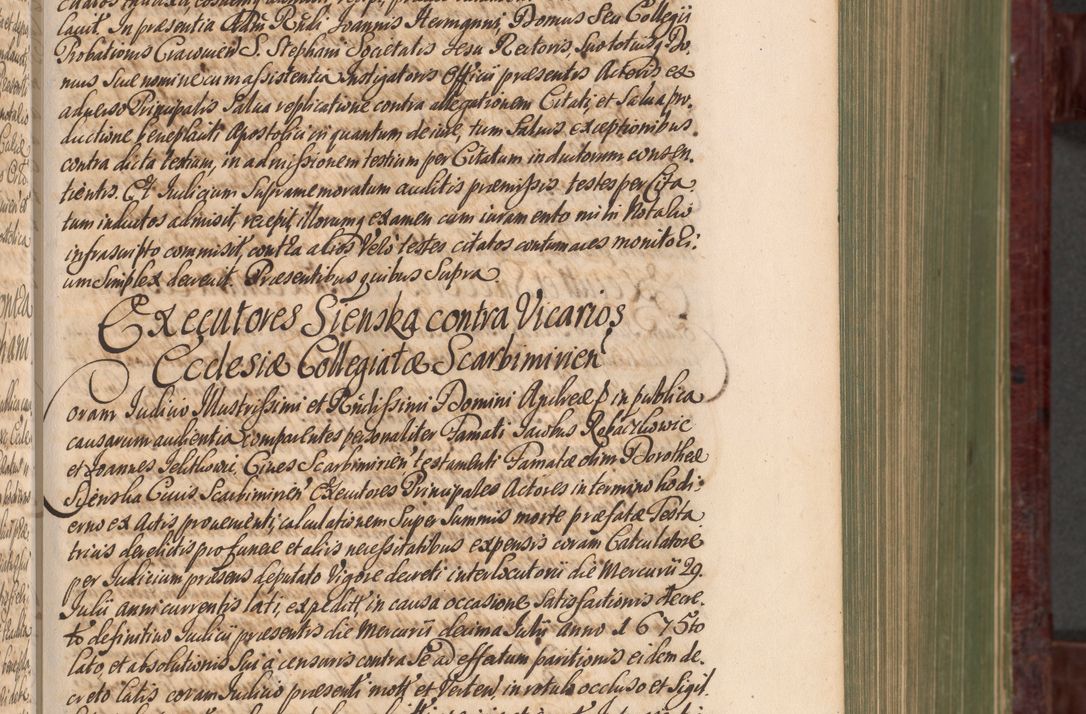 lavit. In præsentia Adm Rndi Joannis Hermanni, Domus Seu Collegii
Probationis Cracoviens S. Stephani Societatis Jesu Rectoris Suo totiusq Do-
mus Suæ nomine cum assistentia Instigatoris Officii præsentis Actoris ex
adverso Principalis Salva replicatione contra allegationem Citati, et Salva pro-
ductione beneplaciti Apostolici in quantum de iure, tum Salvis exceptionibus
contra dicta testium, in admissionem testium per Citatum inductorum consen-
tientis. Et Judicium Supramemoratum auditis præmissis testes per Cita
tum inductos admisit, recepit, illorumq examen cum iuramento mihi Notario
infrascripto commisit, contra alios Vero testes citatos contumaces monitori-
um Simplex decrevit. Præsentibus quibus Supra
Executores Sienska contra Vicarios
Ecclesiæ Collegiatæ Scarbimirien
Coram Judicio Illustrissimi et Rndissimi Domini Andreæ in publica
causarum audientia comparentes personaliter Famati Jacobus
et Joannes Cives Scarbimirien testamenti Famatæ olim Dorotheæ
Sienska Civis Scarbimirien Executores Principales Actores in termino hodi-
erno ex Actis provenienti, calculationem Super Summis morte præfatæ Testa
tricis derelictis pro funere et aliis necessitatibus expensis coram Calculatore
per Judicium præsens deputato Vigore decreti interlocutorii die Mercurii 29.
Julii anni currentis lati, expedit in causa occasione Satisfactionis decre-
to definitivo Judicii præsentis die Mercurii decima Julii anno 1675to
lato, et absolutionis Sui a censuris contra Se ad effectum paritionis eidem de-
creto latis coram Judicio præsenti mott et Verten in rotulo occluso et Sigil